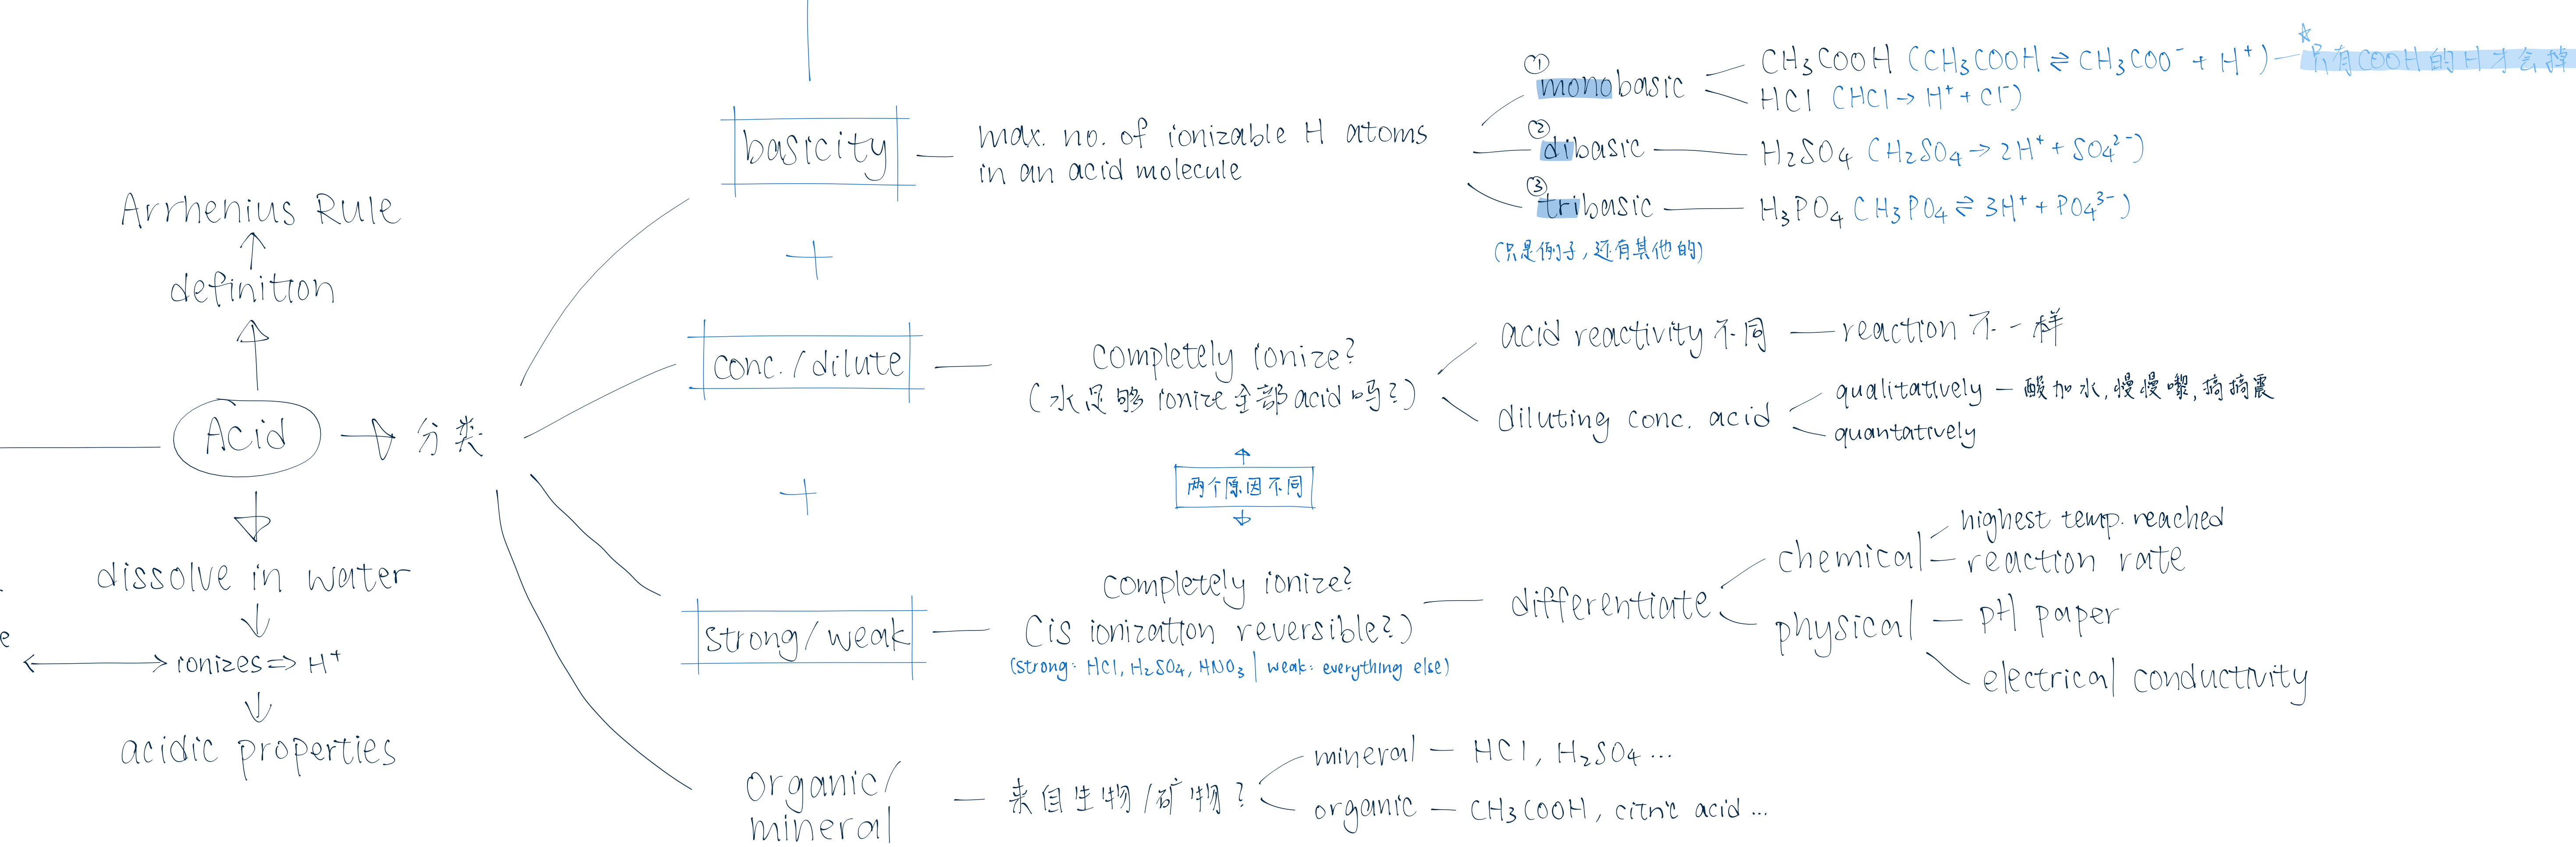 Arrhenius Rule
definition
Acid
分类
dissolve in water
ionizes => H⁺
acidic properties
e
basicity
max. no. of ionizable H atoms
in an acid molecule
①
monobasic
CH₃COOH (CH₃COOH ⇌ CH₃COO⁻ + H⁺)
☆
只有COOH的H才会掉
HCl (HCl → H⁺ + Cl⁻)
②
dibasic
H₂SO₄ (H₂SO₄ → 2H⁺ + SO₄²⁻)
③
tribasic
H₃PO₄ (H₃PO₄ ⇌ 3H⁺ + PO₄³⁻)
(只是例子,还有其他的)
+
conc. / dilute
completely ionize?
(水足够 ionize 全部 acid 吗?)
acid reactivity 不同
reaction 不一样
diluting conc. acid
qualitatively — 酸加水,慢慢嚟,搞搞震
quantatively
两个原因不同
+
strong / weak
completely ionize?
(is ionization reversible?)
(strong: HCl, H₂SO₄, HNO₃ | weak: everything else)
differentiate
chemical
highest temp. reached
reaction rate
physical
pH paper
electrical conductivity
organic/
mineral
来自生物/矿物?
mineral — HCl, H₂SO₄ ...
organic — CH₃COOH, citric acid ...